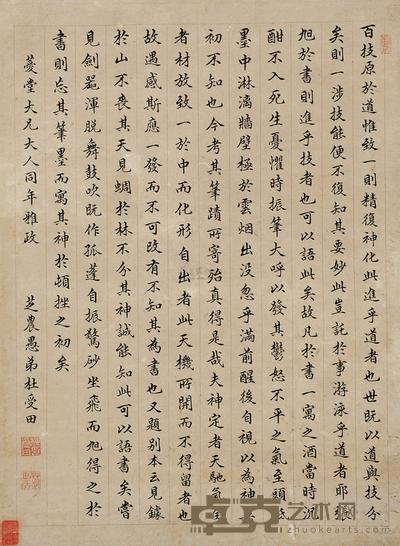 百技原於道惟致一則精復神化此進乎道者也世既以道與技分
矣則一涉技能便不復知其要妙此豈託於事游泳乎道者耶張
旭於書則進乎技者也可以語此矣故凡於書一寓之酒當時沉
酣不入死生憂懼時振筆大呼以發其鬱怒不平之氣至頭
墨中淋漓牆壁極於雲烟出没忽乎滿前醒後自視以為神
初不知也今考其筆蹟所寄殆真得是哉夫神定者天馳氣全
者材放致一於中而化形自出者此天機所開而不得留者也
故遇感斯應一發而不可改有不知其為書也又題別本云見鐻
於山不喪其天見蜩於林不分其神誠能知此可以語書矣嘗
見劍器渾脫舞鼓吹既作孤蓬自振驚砂坐飛而旭得之於
書則忘其筆墨而寓其神於頓挫之初矣
蔆堂大兄大人同年雅政
芝農愚弟杜受田
艺术网
www.zhuokearts.com